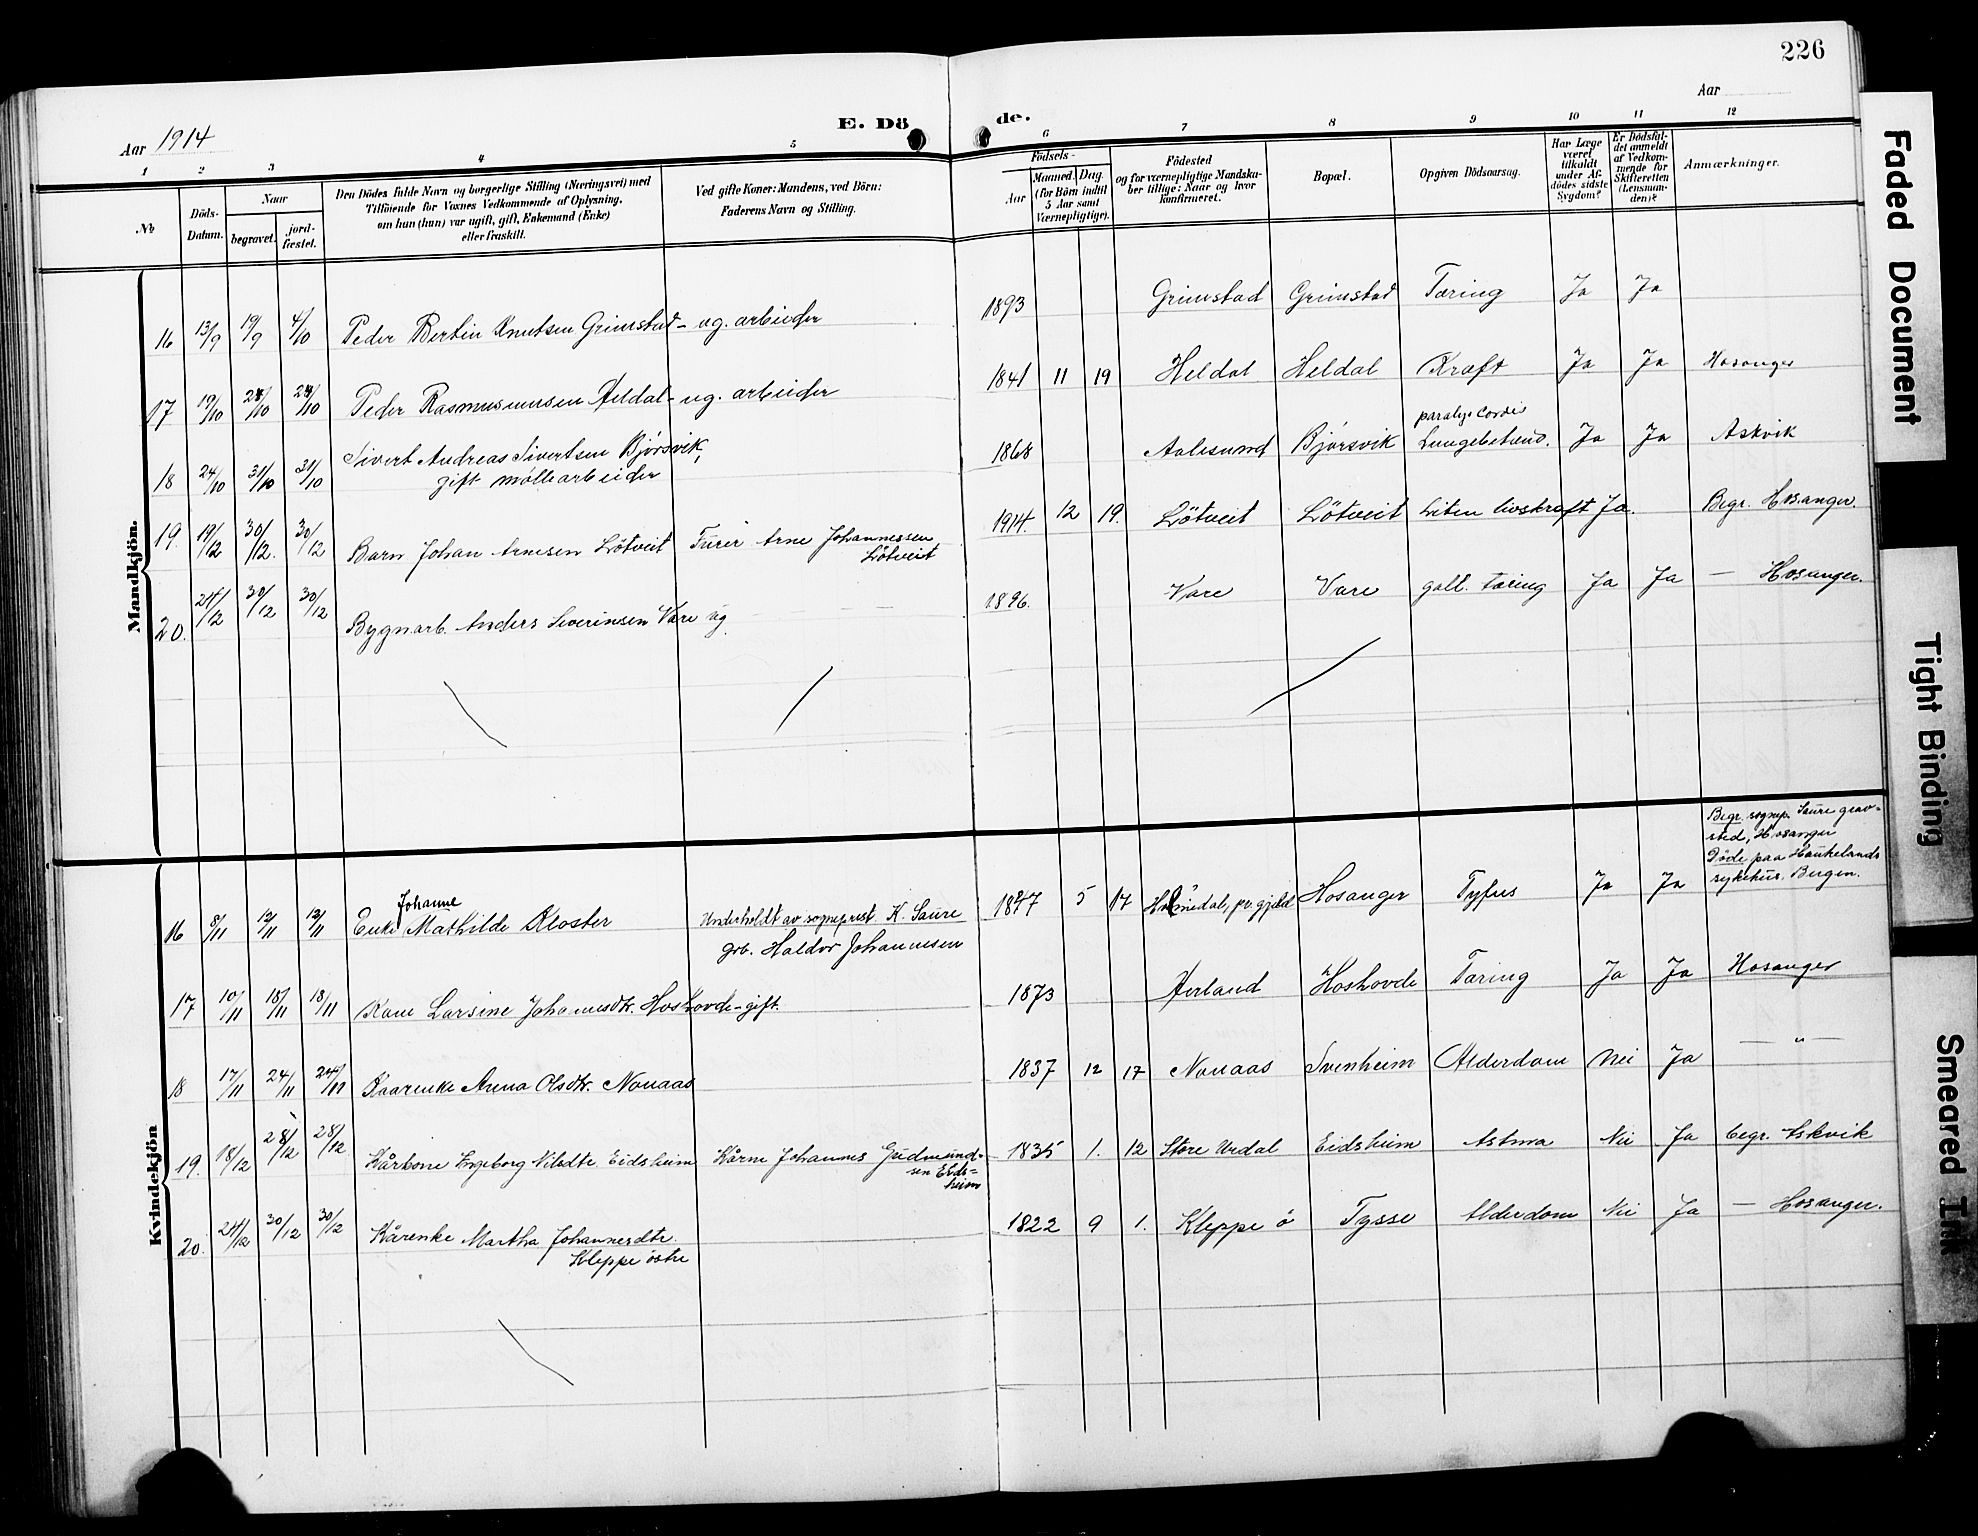 226
Aar 1914
E. Dö
de.
Aar
1 2 3 4 5 6 7 8 9 10 11 12
No
Döds-
Datum.
Naar
begravet.
jord-
fæstet.
Den Dödes fulde Navn og borgerlige Stilling (Næringsvei) med
Tilföiende for Voxnes Vedkommende af Oplysning,
om han (hun) var ugift, gift, Enkemand (Enke)
eller fraskilt.
Ved gifte Koner: Mandens, ved Börn:
Faderens Navn og Stilling.
Födsels-
Aar
Maaned. Dag.
(for Börn indtil
5 Aar samt
Værnepligtige).
Födested
og for værnepligtige Mandska-
ber tillige: Naar og hvor
konfirmeret.
Bopæl.
Opgiven Dödsaarsag.
Har Læge
været
tilkaldt
under Af-
dödes sidste
Sygdom?
Er Dödsfal-
det anmeldt
af Vedkom-
mende for
Skifteretten
(Lensman-
den)?
Anmærkninger.
Mandkjön.
16 13/9 19/9 4/10 Peder Bertin Knutsen Grimstad - ug. arbeider 1893 Grimstad Grimstad Tæring Ja Ja
17 19/10 24/10 24/10 Peder Rasmusmusen Heldal - ug. arbeider 1841 11 19 Heldal Heldal Kræft Ja Ja Hosanger
18 24/10 31/10 31/10 Sivert Andreas Sivertsen Bjørsvik,
gift møllearbeider 1868 Aalesund Bjørsvik paralys cordis
Lungebetænd. Ja Ja Askvik
19. 19/12 30/12. 30/12 Barn Johan Arnesen Lötveit Furer Arne Johannessen
Lötveit 1914. 12 19. Lötveit Lötveit Liten livskraft Ja Begr. Hosanger.
20. 24/12 30/12 30/12 Bygnarb. Anders Severinsen Vare ug 1896. Vare Vare gall. tæring Ja Ja — Hosanger.
Kvindekjön
Begr. sognep. Saure grav-
sted, Hosanger
Døde paa Haukelands
sykehus. Bergen.
16 8/11 12/11 12/11 Johanne
Enke Mathilde Kloster Underholdt av sogneprest K. Saure 1847 5 17 Holmedal, pr. gjeld Hosanger Tyfus Ja Ja
17 10/11 18/11 18/11 Kone Larsine Johannesdtr. Hoshovde - gift. grb. Haldor Johannesen 1873 Herland Hoshovde Tæring Ja Ja Hosanger
18 17/11 24/11 24/11 Kaarenke Anna Olsdtr. Nonaas 1837 12 17 Nonaas Svenheim Alderdom Nei Ja — " —
19. 18/12 28/12 28/12. Kårkone Engeborg Nilsdtr Eidsheim Kårm Johannes Gudmund-
sen Eids-
heim 1835 1. 12 Store Urdal Eidsheim Astma Nei Ja begr. Askvik
20. 24/12 30/12 30/12 Kårenke Martha Johannesdtr.
Kleppe östre 1822 9 1. Kleppe ö Tysse Alderdom Nei Ja — Hosanger.
Faded Document
Tight Binding
Smeared Ink